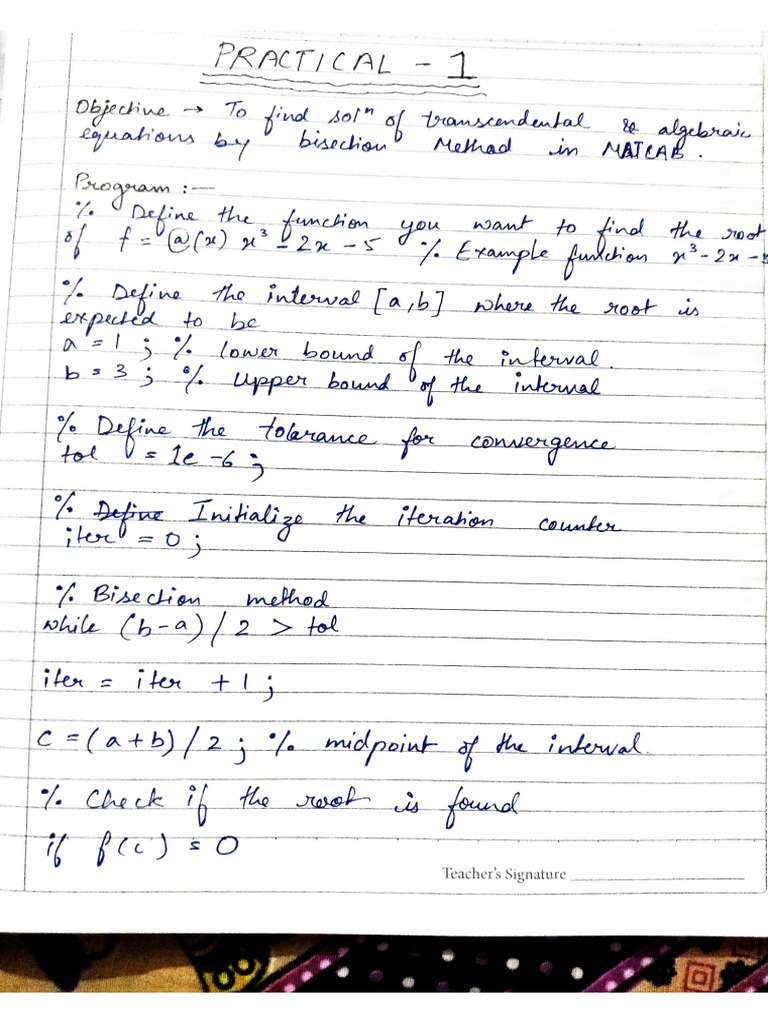 PRACTICAL - 1
Objective → To find solⁿ of transcendental & algebraic
equations by bisection Method in MATLAB.
Program :—
% Define the function you want to find the root
of f = @(x) x³ - 2x - 5 % Example function x³ - 2x - 5
% Define the interval [a,b] where the root is
expected to be
a = 1 ; % lower bound of the interval.
b = 3 ; % Upper bound of the interval
% Define the tolarance for convergence
tol = 1e -6 ;
% Define Initialize the iteration counter
iter = 0 ;
% Bisection method
while (b-a) / 2 > tol
iter = iter + 1 ;
c = (a+b) / 2 ; % midpoint of the interval.
% Check if the root is found
if f(c) = 0
Teacher's Signature